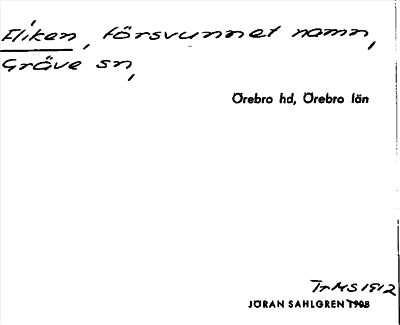 Fliken, försvunnet namn,
Gräve sn,
Örebro hd, Örebro län
Tr MS 1912
JÖRAN SAHLGREN 1908